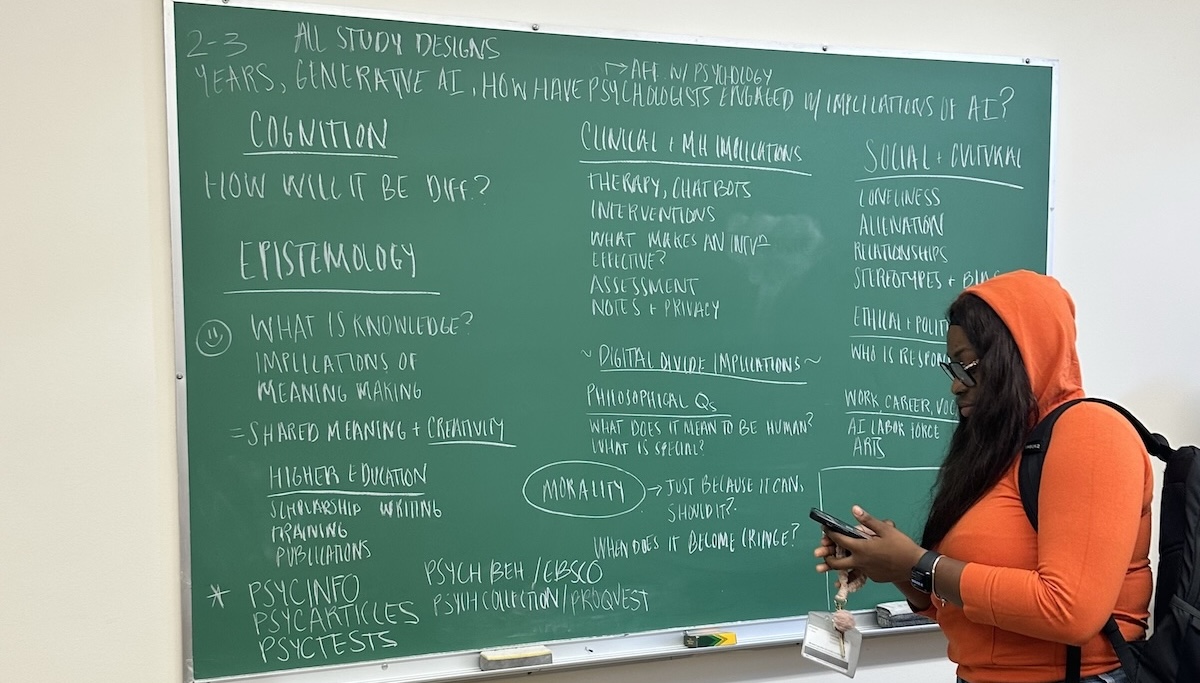 2-3 ALL STUDY DESIGNS
→ AFF. W/ PSYCHOLOGY
YEARS, GENERATIVE AI, HOW HAVE PSYCHOLOGISTS ENGAGED W/ IMPLICATIONS OF AI?
COGNITION
HOW WILL IT BE DIFF.?
EPISTEMOLOGY
WHAT IS KNOWLEDGE?
IMPLICATIONS OF
MEANING MAKING
= SHARED MEANING + CREATIVITY
HIGHER EDUCATION
SCHOLARSHIP WRITING
TRAINING
PUBLICATIONS
* PSYCINFO
PSYCARTICLES
PSYCTESTS
PSYCH BEH / EBSCO
PSYCH COLLECTION / PROQUEST
CLINICAL + MH IMPLICATIONS
THERAPY, CHATBOTS
INTERVENTIONS
WHAT MAKES AN INTVN
EFFECTIVE?
ASSESSMENT
NOTES + PRIVACY
~ DIGITAL DIVIDE IMPLICATIONS ~
PHILOSOPHICAL Qs
WHAT DOES IT MEAN TO BE HUMAN?
WHAT IS SPECIAL?
MORALITY → JUST BECAUSE IT CAN,
SHOULD IT?
WHEN DOES IT BECOME CRINGE?
SOCIAL + CULTURAL
LONELINESS
ALIENATION
RELATIONSHIPS
STEREOTYPES +
ETHICAL +
WHO IS
WORK, CAREER,
AI LABOR FORCE
ARTS